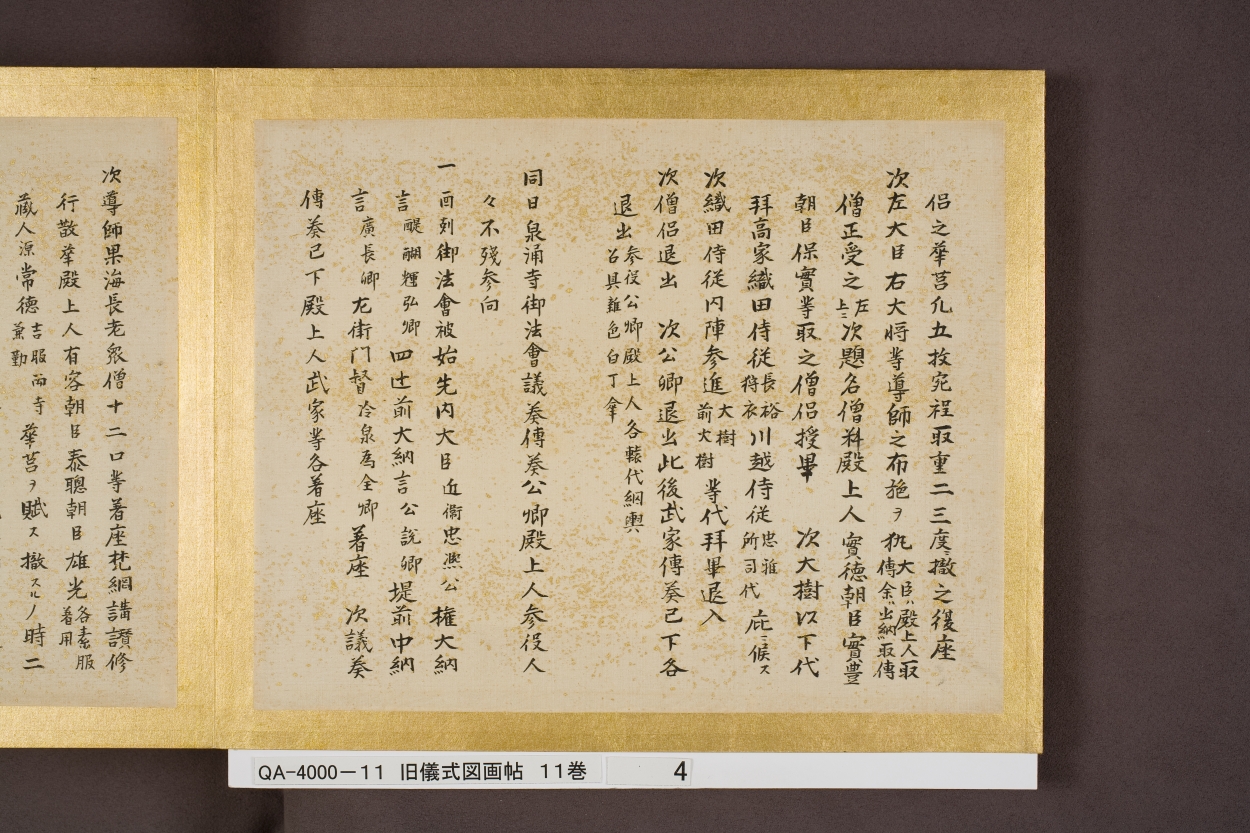 侶之華筥凢五枚宛程取重二三度ニ撤之復座
次左大臣右大将等導師之布施ヲ執大臣ハ殿上人取傳余ハ出納取傳
僧正受之左上ニ次題名僧料殿上人實德朝臣實豊
朝臣保實等取之僧侶授畢 次大樹以下代
拜高家織田侍従長裕狩衣川越侍従忠雅所司代庇ニ候ス
次織田侍従内陣参進大樹前大樹等代拜畢退入
次僧侶退出 次公卿退出此後武家傳奏已下各
退出参役公卿殿上人各轅代網輿召具雜色白丁傘
同日泉涌寺御法會議奏傳奏公卿殿上人参役人
々不殘参向
一 酉刻御法會被始先内大臣近衞忠凞公權大納
言醍醐輝弘卿四辻前大納言公説卿堤前中納
言廣長卿左衛門督冷泉為全卿著座 次議奏
傳奏已下殿上人武家等各著座
次導師果海長老衆僧十二口等著座梵網講讃修
行散華殿上人有容朝臣泰聰朝臣雄光各素服著用
藏人源常德吉服両寺兼勤華筥ヲ賦ス撤スルノ時二
QA-4000-11 旧儀式図画帖 11巻 4